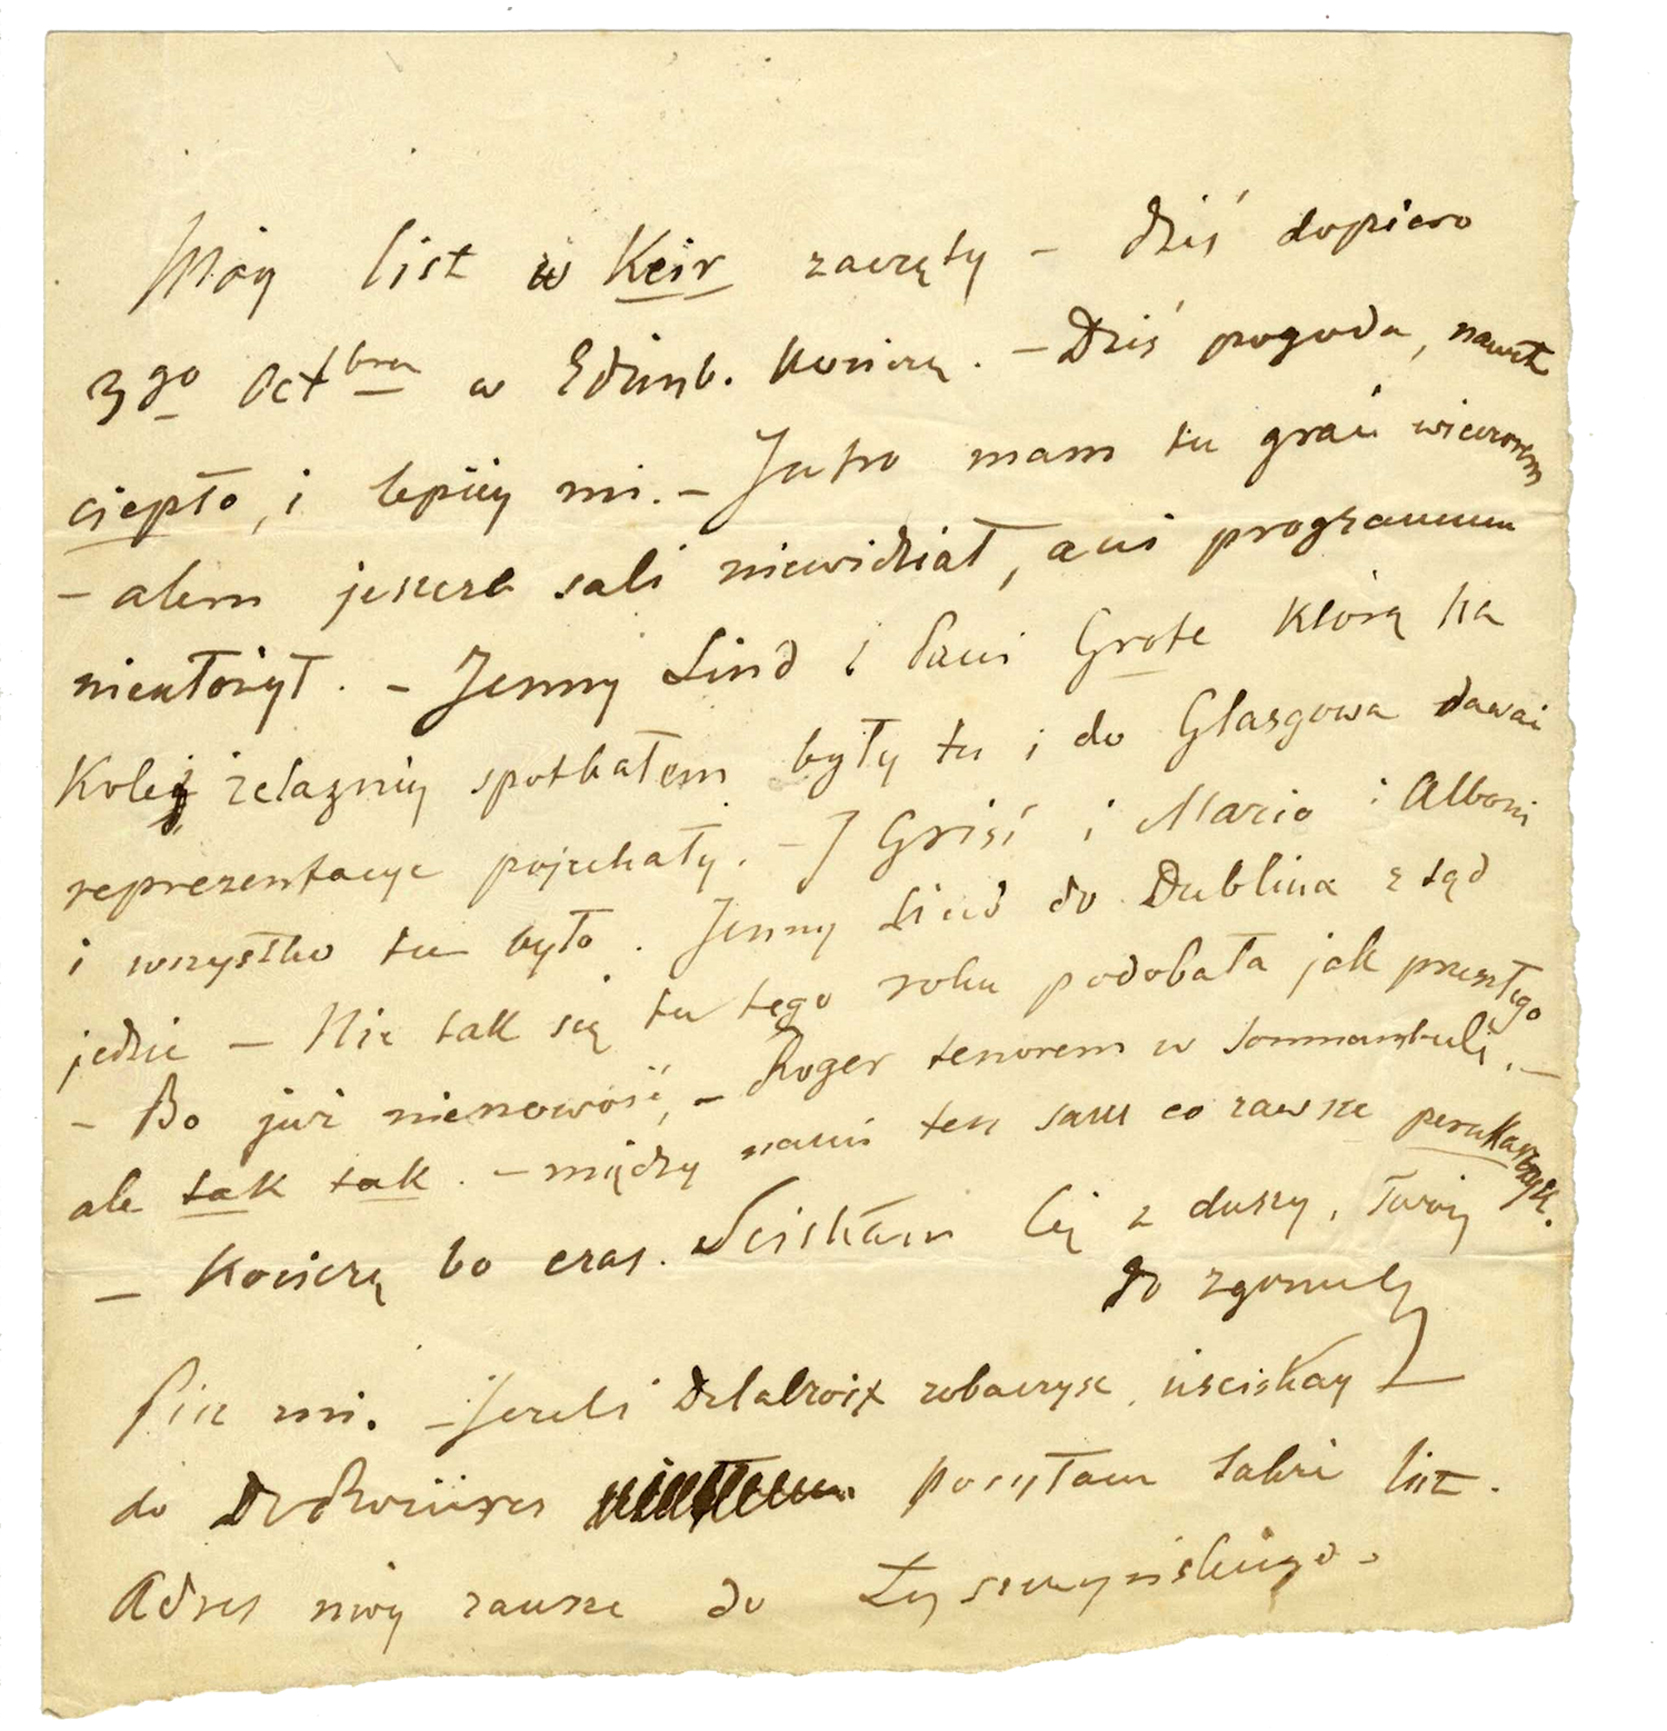 Móy list w Keir zaczęty – dziś dopiero
3go Octbra w Edimb. kończę. – Dziś pogoda, nawet
ciepło, i lepiéy mi. – Jutro mam tu grać wieczorem
– alem jeszcze sali niewidział, ani programmu
nieułożył. – Jenny Lind i Pani Grote którą na
Kolei żelaznéy spotkałem były tu i do Glasgowa dawać
reprezentacye pojechały. – I Grisi i Mario i Alboni
i wszystko tu było. Jenny Lind do Dublina ztąd
jedzie – Nie tak się tu tego roku podobała jak przeszłego
– Bo już nienowość, – Roger tenorem w Somnambuli. –
ale tak tak. – między nami ten sam co zawsze perukarczyk.
– Kończę bo czas. Sciskam Cię z duszy, Twóy
do zgonu
Pisz mi. – Jezeli Delakroix zobaczysz, uściskay
do De Rozières posyłam także list.
Adres móy zawsze do Łyszczyńskiego.